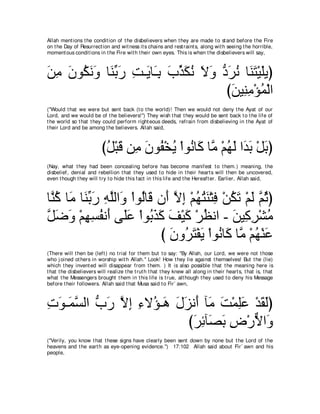 Allah mentions the condition of the disbelievers when they are made to stand before the Fire
on the Day of Resurrection and witness its chains and restraints, along with seeing the horrible,
momentous conditions in the Fire with their own eyes. This is when the disbelievers will say,
يَلَيْتَنَا نُرَدُّ وَلاَ نُكَذِّبَ بِـَايَـتِ رَبِّنَا وَنَكُونَ مِنَ
الْمُؤْمِنِينَ)
("Would that we were but sent back (to the world)! Then we would not deny the Ayat of our
Lord, and we would be of the believers!") They wish that they would be sent back to the life of
the world so that they could perform righteous deeds, refrain from disbelieving in the Ayat of
their Lord and be among the believers. Allah said,
(بَلْ بَدَا لَهُمْ مَّا كَانُواْ يُخْفُونَ مِن قَبْلُ)
(Nay, what they had been concealing before has become manifest to them.) meaning, the
disbelief, denial and rebellion that they used to hide in their hearts will then be uncovered,
even though they will try to hide this fact in this life and the Hereafter. Earlier, Allah said,
(ثُمَّ لَمْ تَكُنْ فِتْنَتُهُمْ إِلاَّ أَن قَالُواْ وَاللَّهِ رَبِّنَا مَا كُنَّا
مُشْرِكِينَ - انظُرْ كَيْفَ كَذَبُواْ عَلَى أَنفُسِهِمْ وَضَلَّ
عَنْهُمْ مَّا كَانُواْ يَفْتَرُونَ )
(There will then be (left) no trial for them but to say: "By Allah, our Lord, we were not those
who joined others in worship with Allah." Look! How they lie against themselves! But the (lie)
which they invented will disappear from them. ) It is also possible that the meaning here is
that the disbelievers will realize the truth that they knew all along in their hearts, that is, that
what the Messengers brought them in this life is true, although they used to deny his Message
before their followers. Allah said that Musa said to Fir`awn,
(لَقَدْ عَلِمْتَ مَآ أَنزَلَ هَـؤُلاءِ إِلاَّ رَبُّ السَّمَـوَتِ
وَالاٌّرْضِ بَصَآئِرَ)
("Verily, you know that these signs have clearly been sent down by none but the Lord of the
heavens and the earth as eye-opening evidence.") 17:102. Allah said about Fir`awn and his
people,